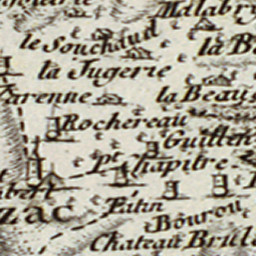 Malabry
le Souchaud
la B
la Jugerie
Varenne
la Beaus
Rochereau
Guillen
pt Chapitre
bert
zac
Patin
Bourou
Chateau Brule